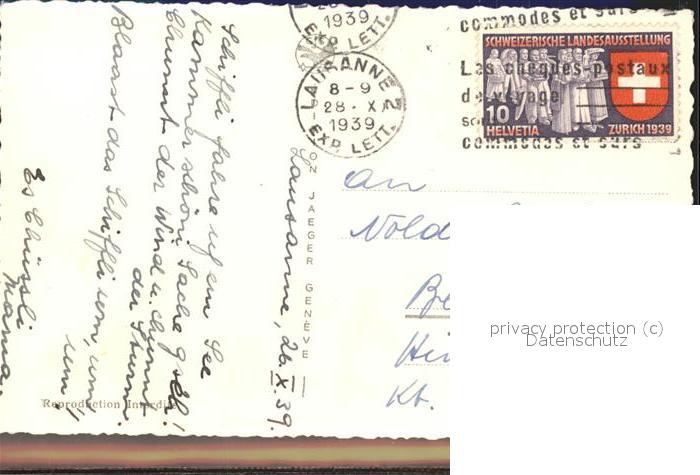 1939
EXP. LETT.
LAUSANNE 2
8-9
28. X
1939
EXP. LETT.
commodes et surs
Les chèques postaux
de voyage
sont
commodes et surs
SCHWEIZERISCHE LANDESAUSSTELLUNG
10
HELVETIA
ZÜRICH 1939
Lausanne, 26.X.39.
Schiffli fahre uf em See
Kammer schöni Sache g seh!
Chunnt der Wind u. chunnt
der Sturm.
Blaast das Schiffli um, um
um!
Es Chüssli
Mama.
An
ON JAEGER GENÈVE
Reproduction Interdite
Kt.
privacy protection (c)
Datenschutz